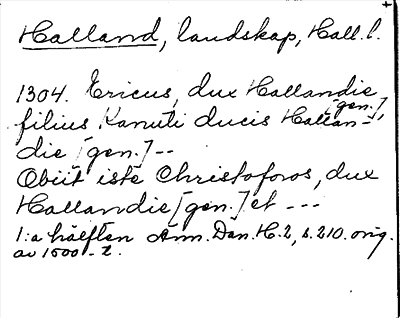 Halland, landskap, Hall. l.
1304. Ericus, dux Hallandie [gen.],
filius Kanuti ducis Hallan-
die [gen.] --
Obiit iste Christoforos, dux
Hallandie [gen.] et ---
1:a hälften Ann. Dan. H. 2, s. 210. orig.
av 1500-t.